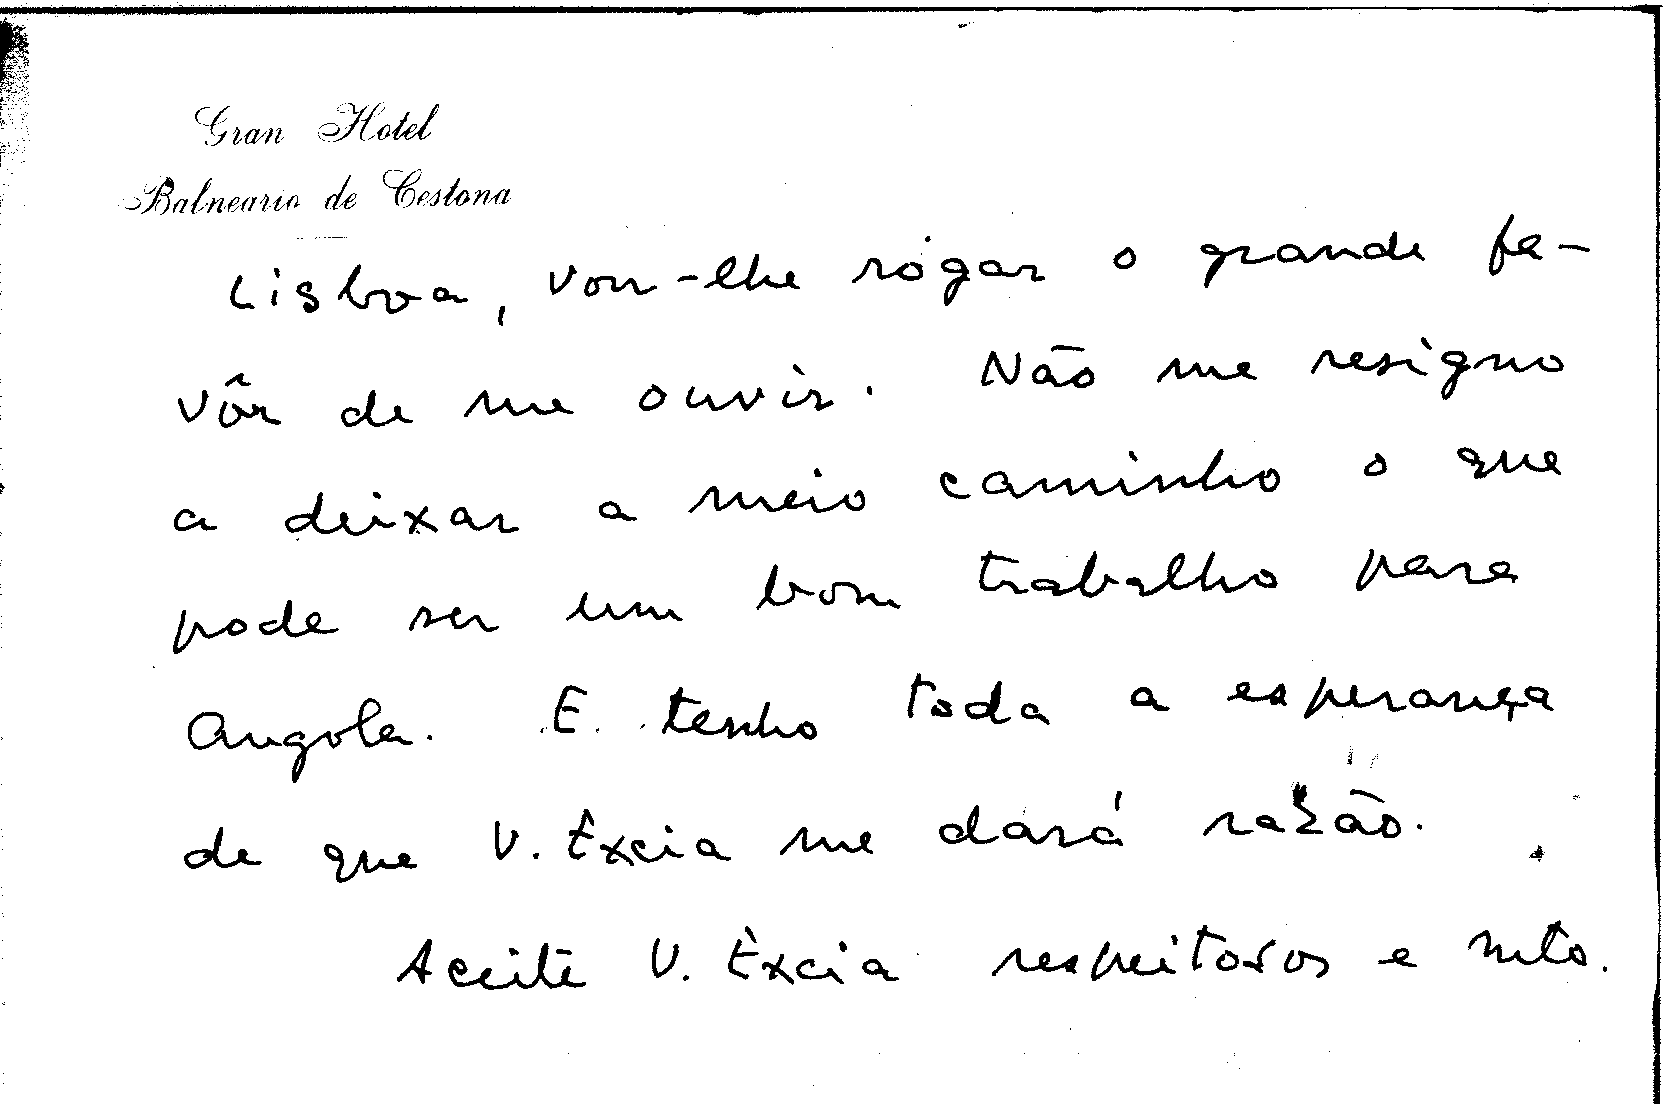 Gran Hotel
Balneario de Cestona
Lisboa, vou-lhe rogar o grande fa-
vôr de me ouvir. Não me resigno
a deixar a meio caminho o que
pode ser um bom trabalho para
Angola. E tenho toda a esperança
de que V. Êxcia me dará razão.
Aceite V. Êxcia respeitosos e mto.